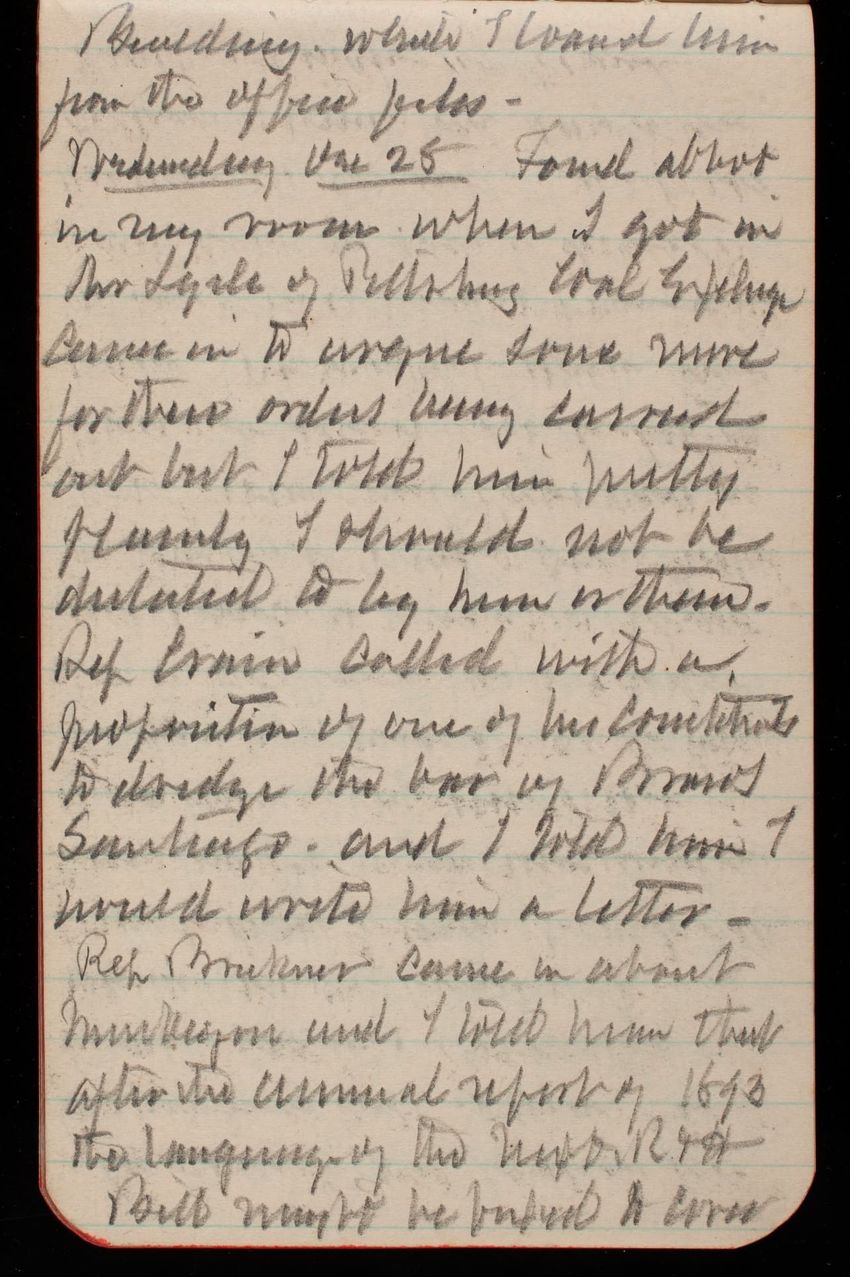 Building. which I loaned him
from the office files -
Wednesday 25 Found Abbot
in my room when I got in
Mr Lysle of Pittsburg Coal Exchange
came in to argue some more
for their orders being carried
out but I told him pretty
plainly I should not be
dictated to by him or them.
Rep Crain called with a
proposition of one of his constituents
to dredge the bar of Brazos
Santiago - and I told him I
would write him a letter -
Rep Brickner came in about
Muskegon and I told him that
after the annual report of 1893
the language of the next R & H
Bill might be to cover